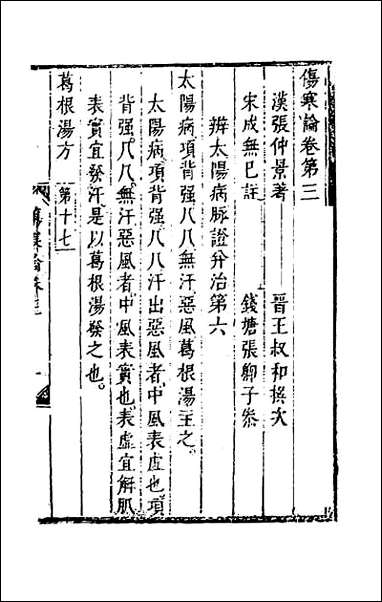 傷寒論卷第三
漢張仲景著 晉王叔和撰次
宋成無已註 錢塘張卿子叅
辨太陽病脉證并治第六
太陽病項背强几几無汗惡風葛根湯主之
太陽病項背强几几汗出惡風者中風表虛也項
背强几几無汗惡風者中風表實也表虛宜解肌
表實宜發汗是以葛根湯發之也
葛根湯方 第十七